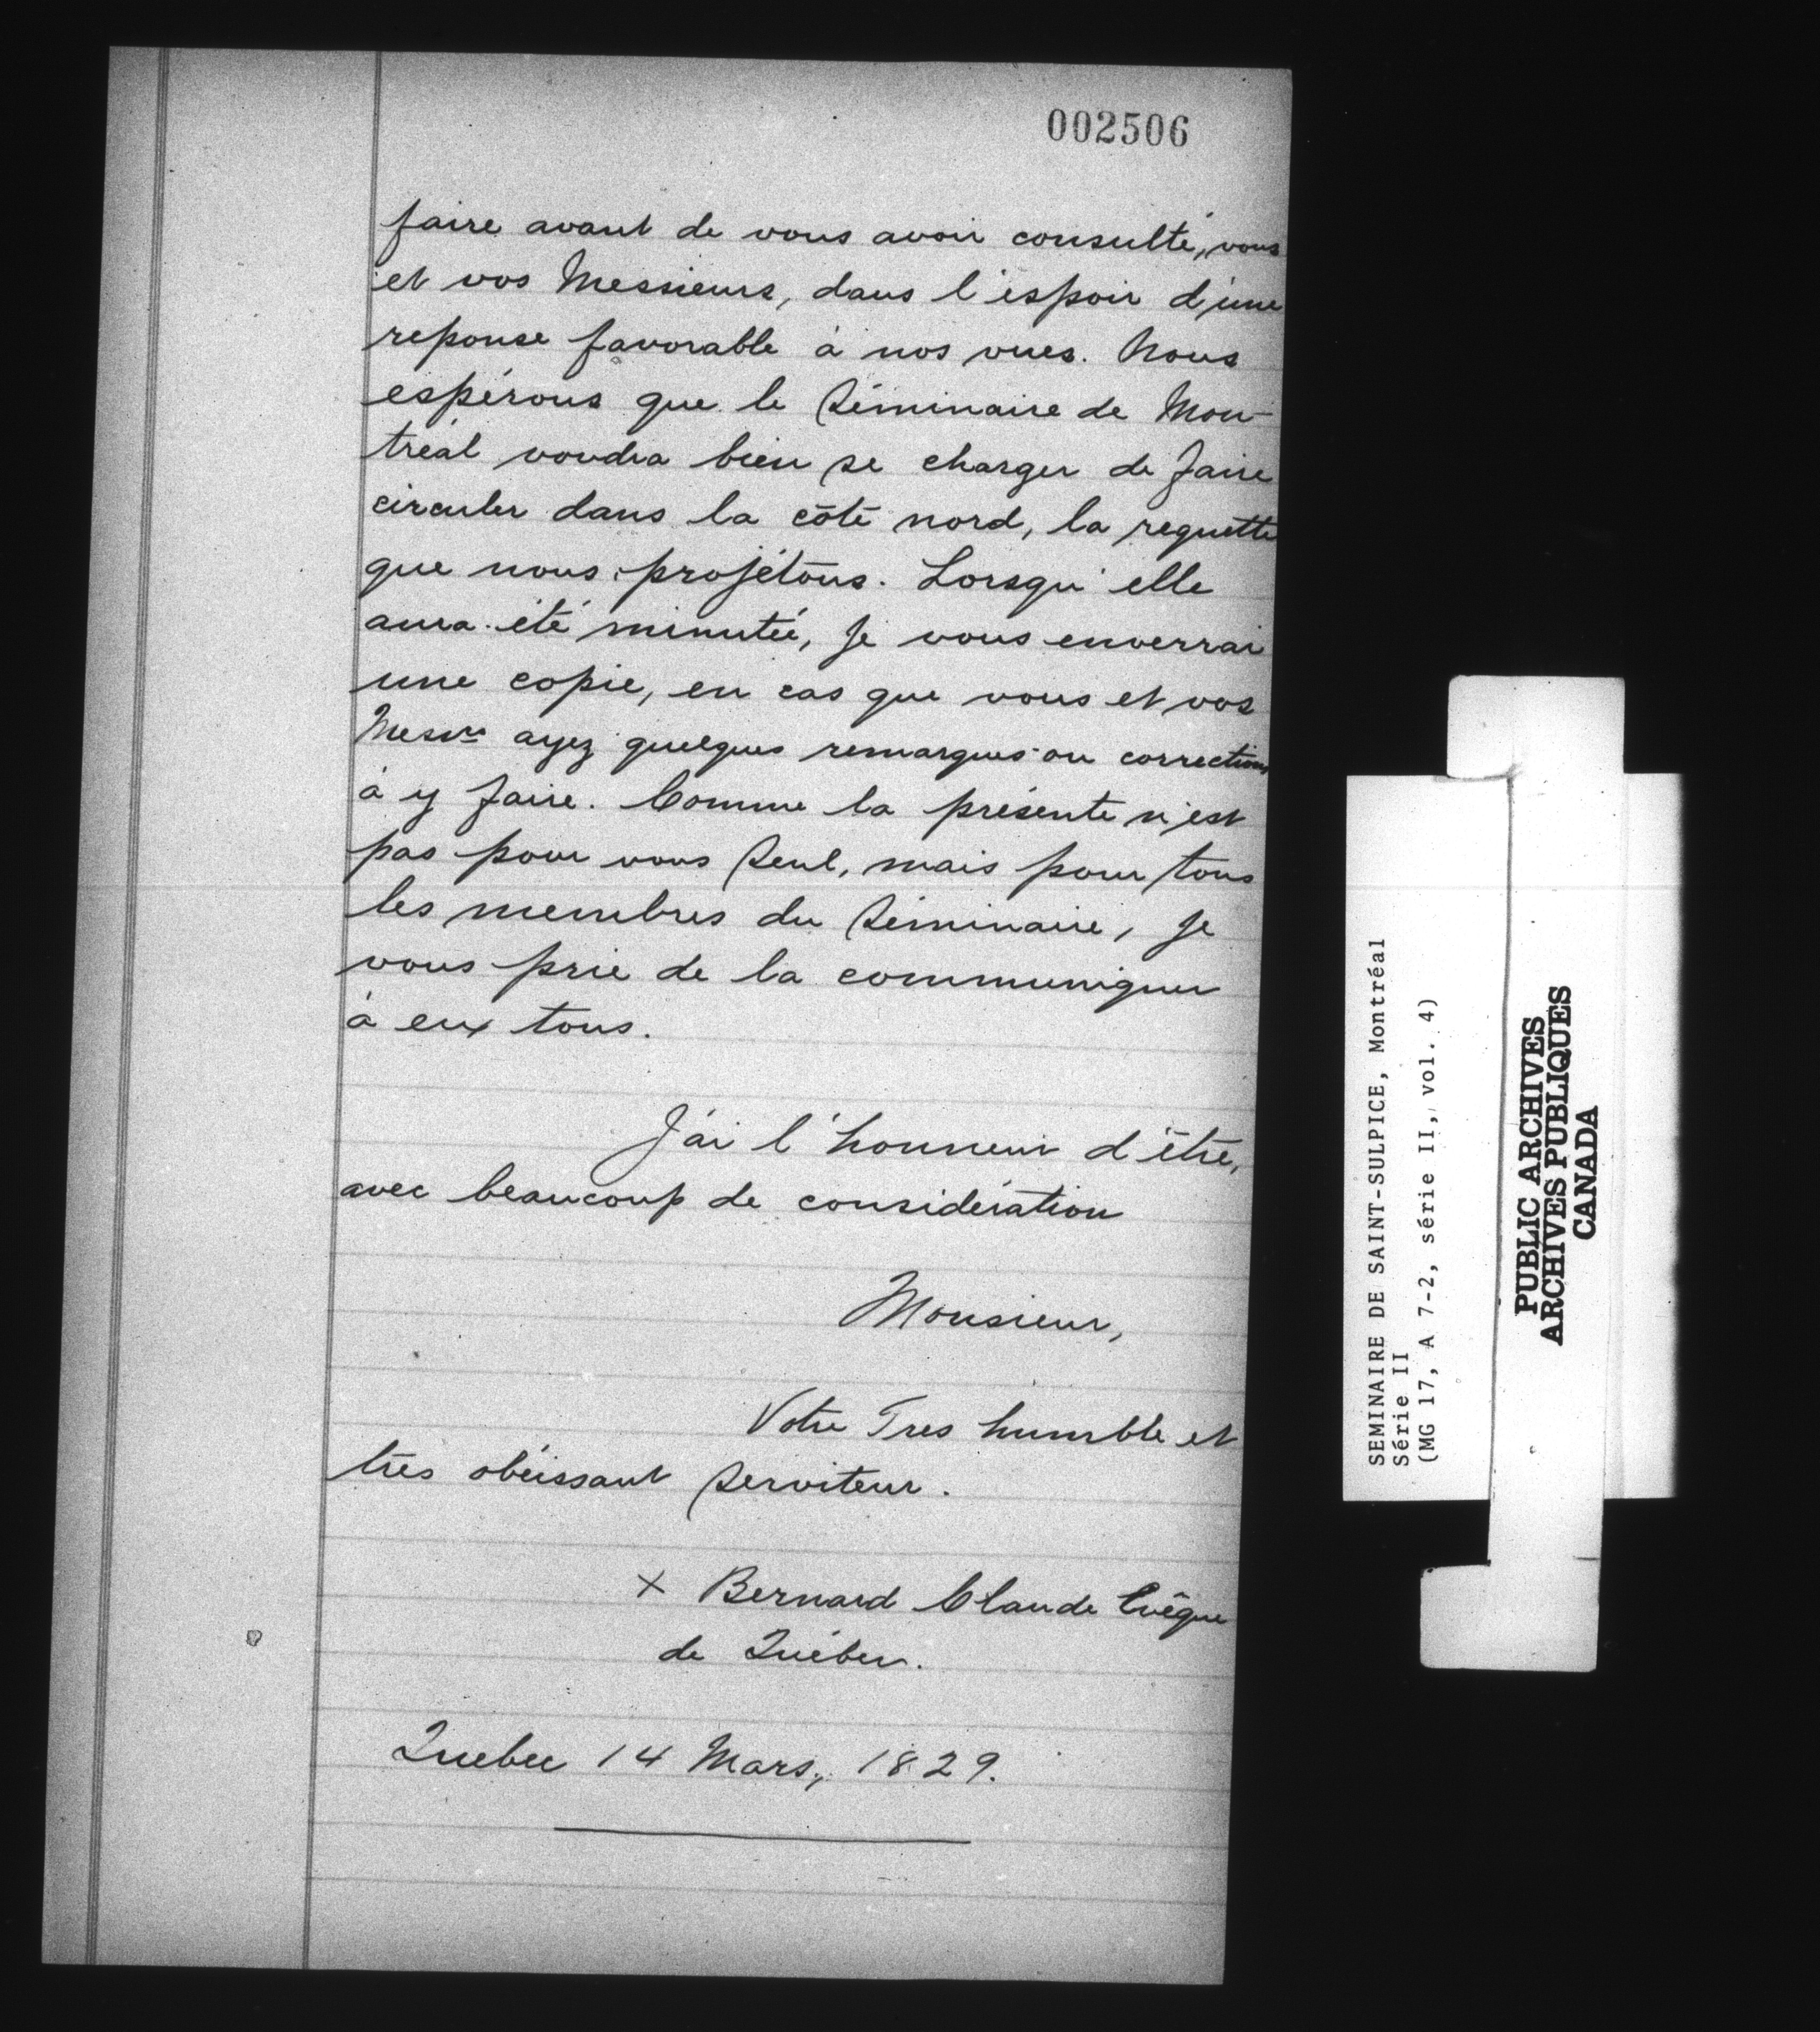 002506
faire avant de vous avoir consulté, vous
et vos Messieurs, dans l'espoir d'une
reponse favorable à nos vues. Nous
espérons que le Séminaire de Mon-
tréal voudra bien se charger de faire
circuler dans la côté nord, la requette
que nous projétons. Lorsqu'elle
aura été minutée, Je vous enverrai
une copie, en cas que vous et vos
Messrs ayez quelques remarques ou corrections
à y faire. Comme la présente n'est
pas pour vous seul, mais pour tous
les membres du Séminaire, Je
vous prie de la communiquer
à eux tous.
J'ai l'honneur d'être,
avec beaucoup de considération
Monsieur,
Votre Tres humble et
très obéissant Serviteur.
X Bernard Claude Evêque
de Québec.
Quebec 14 Mars, 1829.
SEMINAIRE DE SAINT-SULPICE, Montréal
Série II
(MG 17, A 7-2, série II, vol. 4)
PUBLIC ARCHIVES
ARCHIVES PUBLIQUES
CANADA